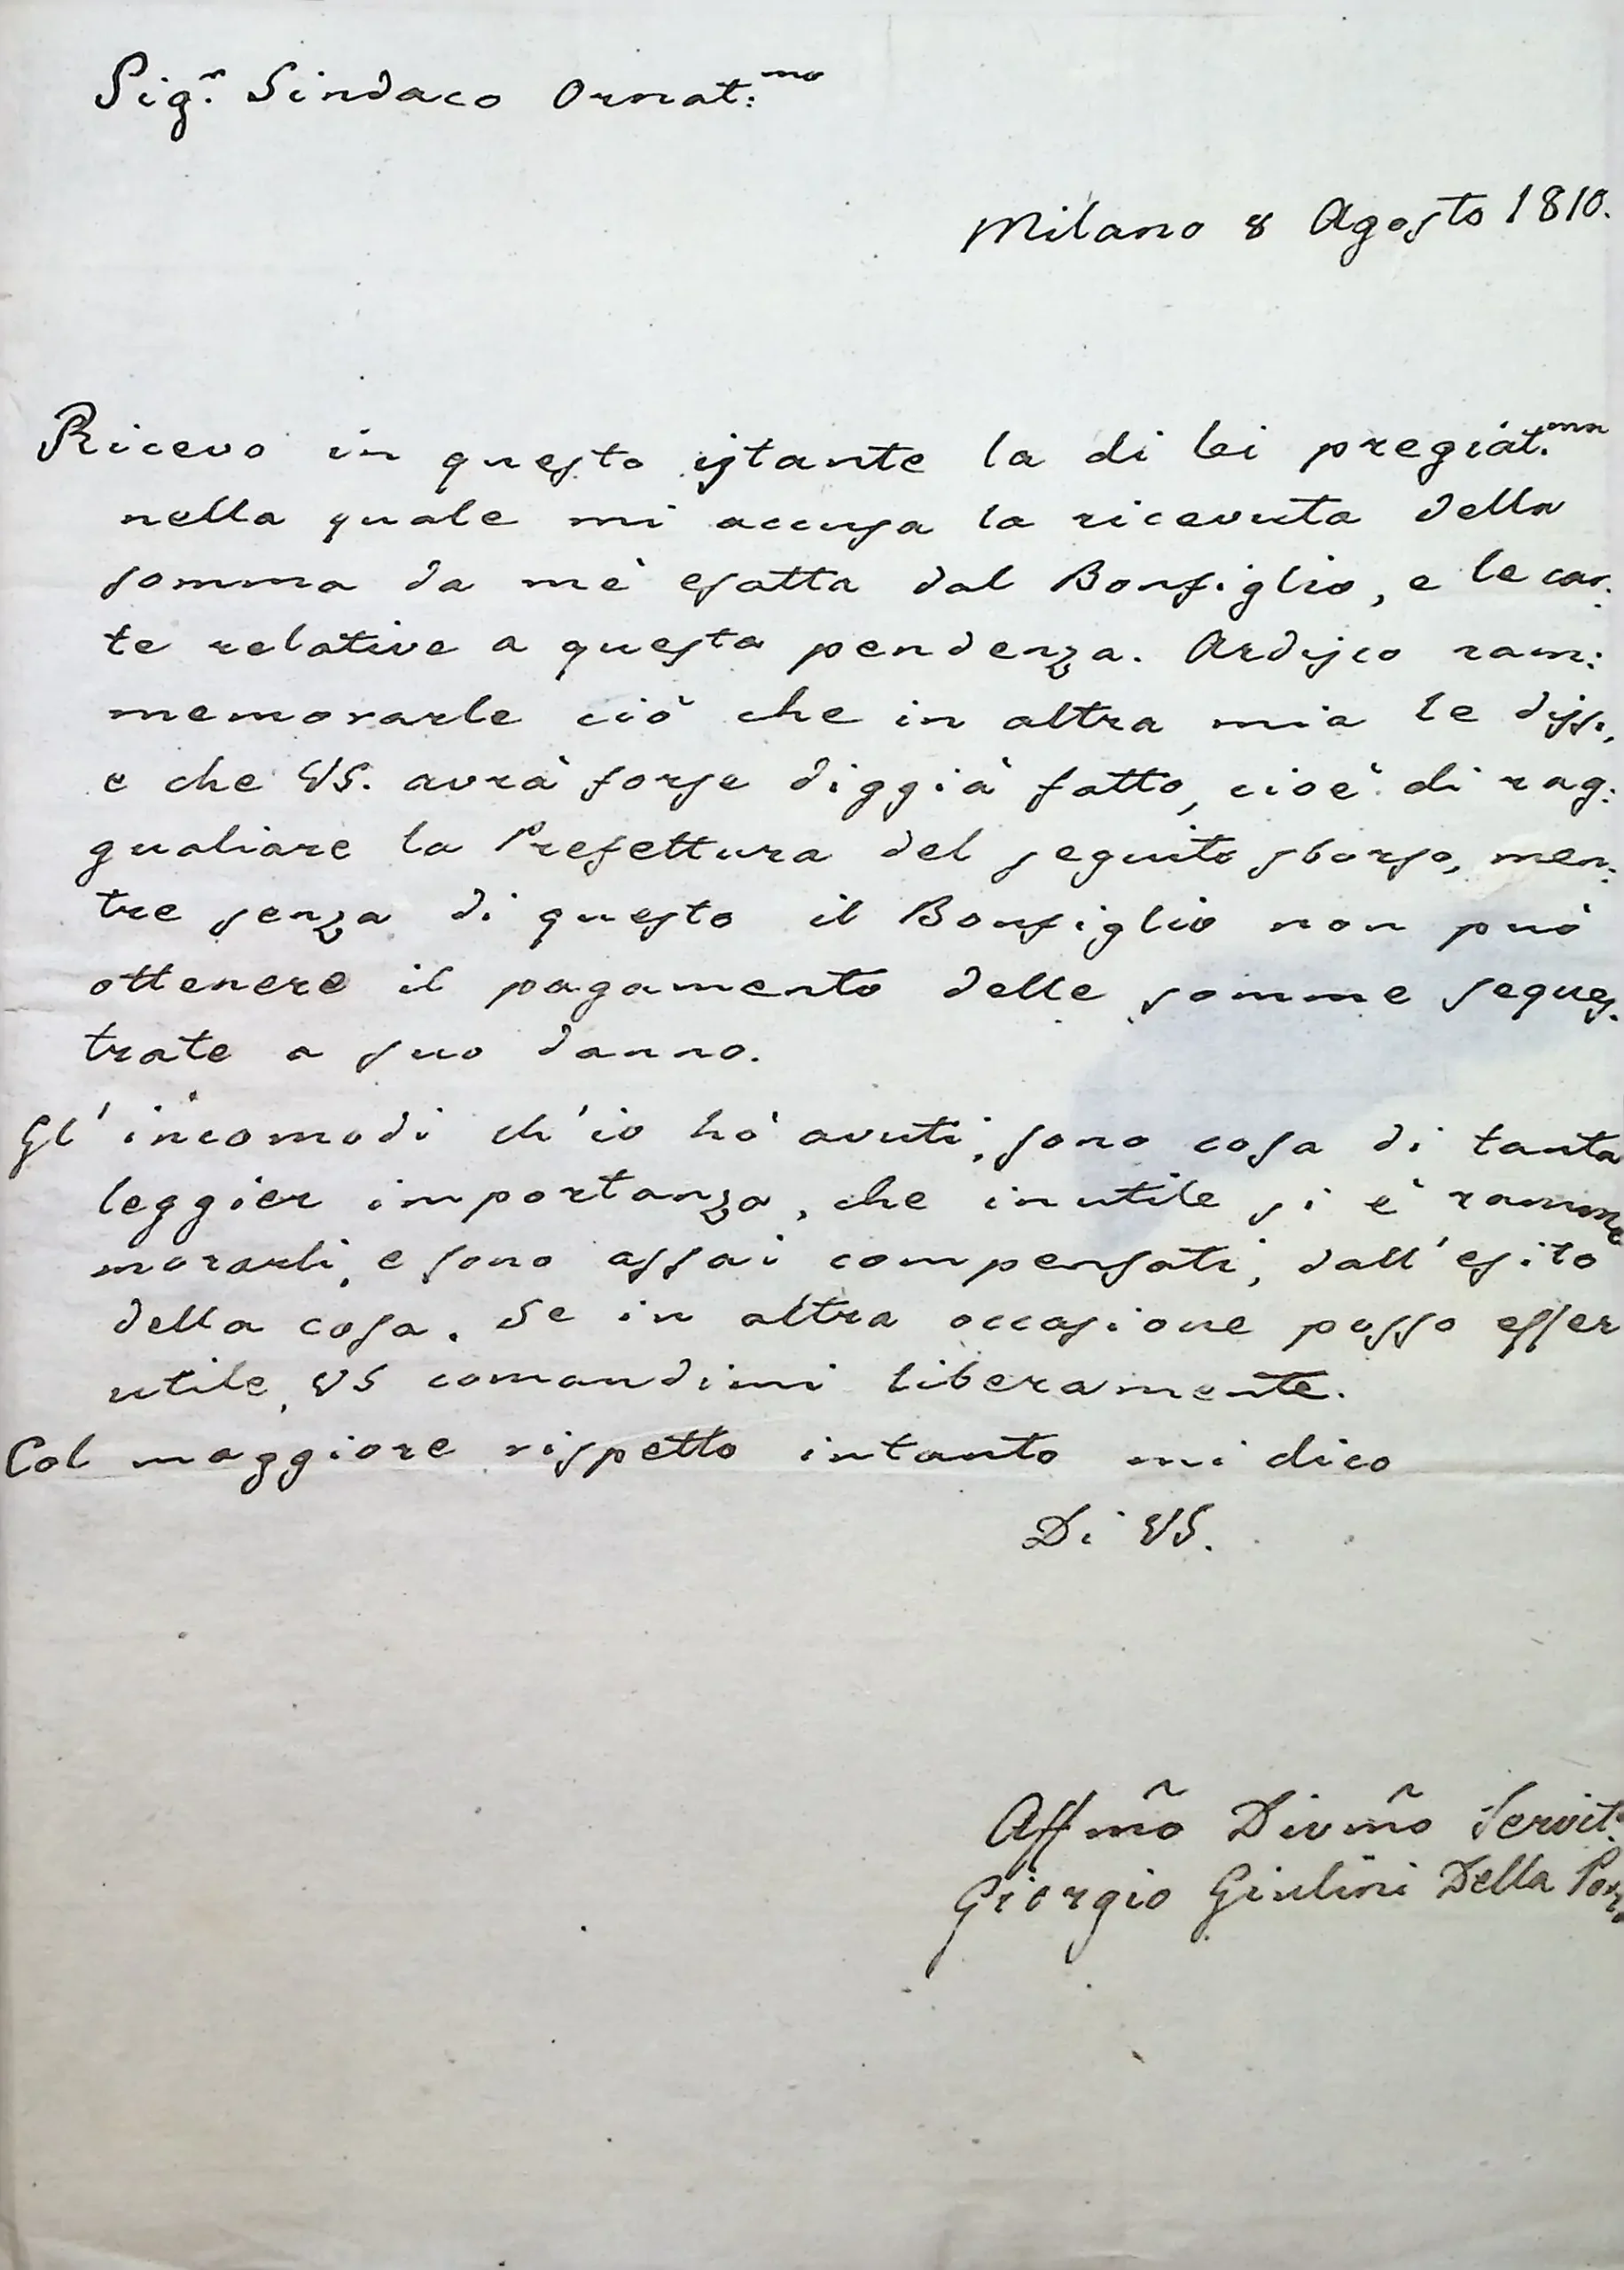 Sig.r Sindaco Ornat:mo
Milano 8 Agosto 1810.
Ricevo in questo istante la di lei pregiat.ma
nella quale mi accusa la ricevuta della
somma da mè esatta dal Bonfiglio, e le car:
te relative a questa pendenza. Ardisco ram:
memorarle ciò che in altra mia le dissi,
e che VS. avrà forse diggià fatto, cioè di rag:
gualiare la Prefettura del seguito sborso, men:
tre senza di questo il Bonfiglio non può
ottenere il pagamento delle somme seques.
trate a suo danno.
Gl' incomodi ch'io hò avuti, sono cosa di tanta
leggier importanza, che inutile si è ramme
morarli, e sono assai compensati, dall'esito
della cosa. Se in altra occasione posso esser
utile, VS comandimi liberamente.
Col maggiore rispetto intanto mi dico
Di VS.
Affmo Divmo Servit.
Giorgio Giulini Della Porta